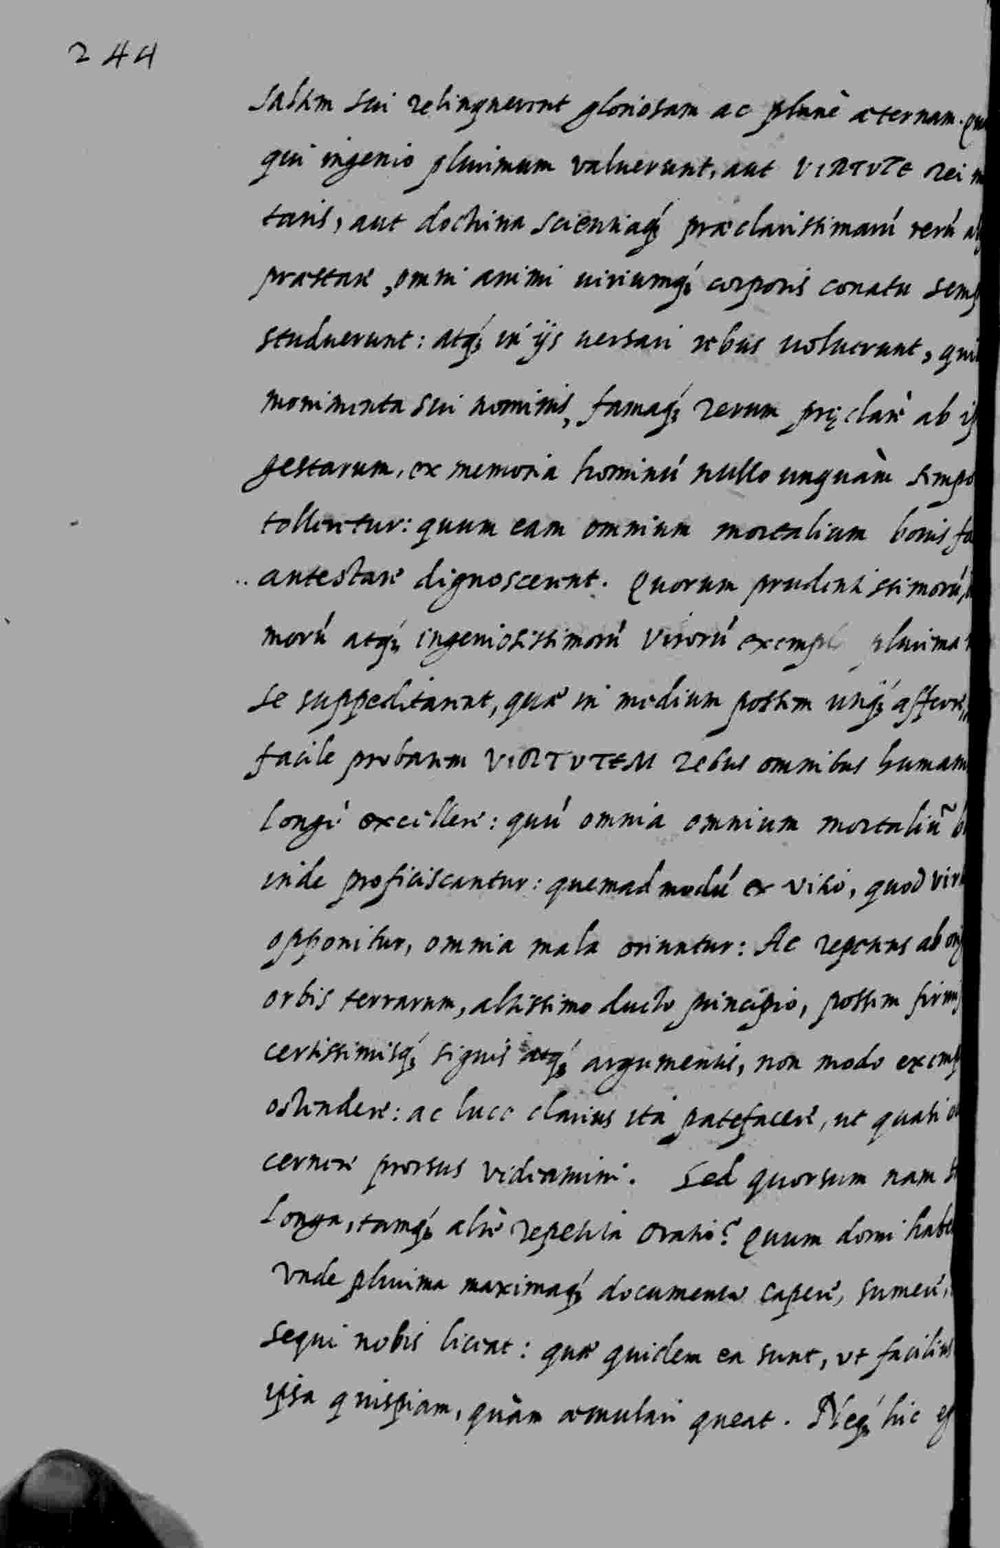 244
saltem sui relinquerent gloriosam ac planè æternam.
qui ingenio plurimum valuerunt, aut VIRTVTE rei
taris, aut doctrina scientiaq́; præclarissimarú rerú
præstare, omni animi viriumq́; corporis conatu
studuerunt: atq́; in ijs versari rebus voluerunt,
monimenta sui nominis, famaq́; rerum pręclarè ab
gestarum, ex memoria hominú nullo unquàm
tollerentur: quum eam omnium mortalium bonis
antestare dignoscerent. Quorum prudentissimorú
morú atq́; ingeniosissimorú virorú plurima
se suppeditarent, quæ in medium possem afferre,
facile probarem VIRTVTEM rebus omnibus
longè excellere: quú omnia omnium mortaliũ
inde proficiscantur: quemadmodú ex vitio, quod
opponitur, omnia mala oriuntur: Ac repetens ab
orbis terrarum, altissimo ducto principio, possem
certissimisq́; signis atq́; argumentis, non modo
ostendere: ac luce clarius ita patefacere, ut quasi
cernere prorsus videamini. Sed quorsum nam
longa, tamq́; altè repetita oratio? Quum domi
Vnde plurima maximaq́; documenta capere, sumere,
sequi nobis liceat: quæ quidem ea sunt, vt
ipsa quispiam, quàm æmulari queat. Neq́; hic